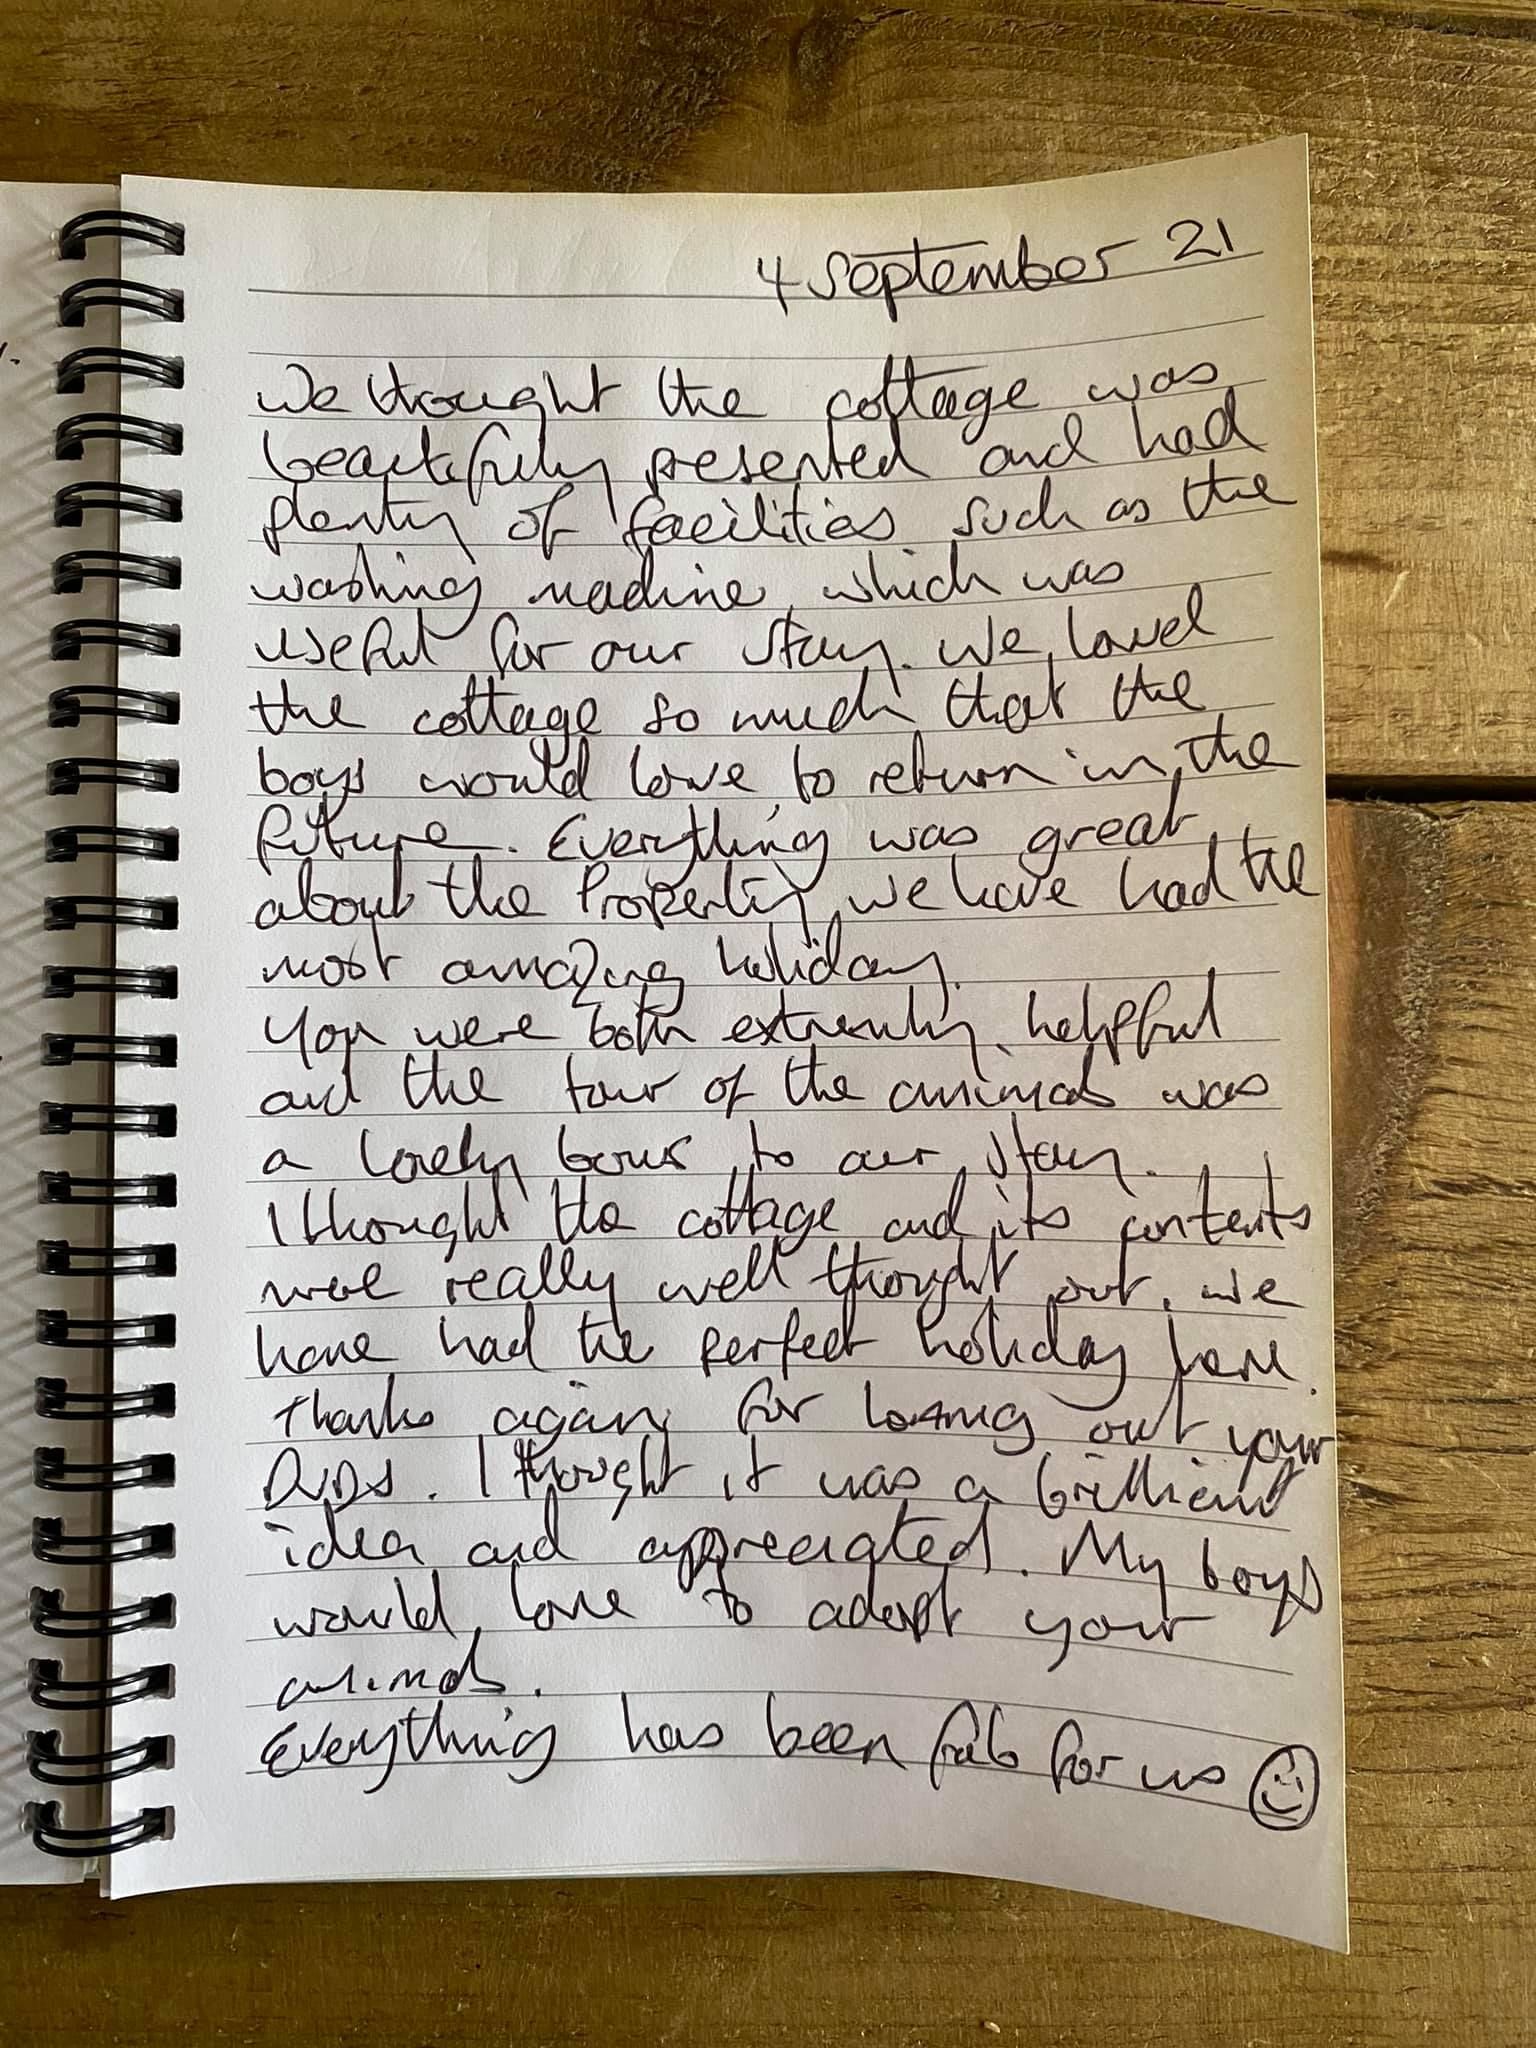 4 September 21
We thought the cottage was
beautifully presented and had
plenty of facilities such as the
washing machine which was
useful for our stay. We loved
the cottage so much that the
boys would love to return in the
future. Everything was great
about the Property we have had the
most amazing holiday.
You were both extremely helpful
and the tour of the animals was
a lovely bonus to our stay.
I thought the cottage and its contents
were really well thought out. We
have had the perfect holiday here.
Thanks again for loaning out your
DVDs. I thought it was a brilliant
idea and appreciated. My boys
would love to adopt your
animals.
Everything has been fab for us